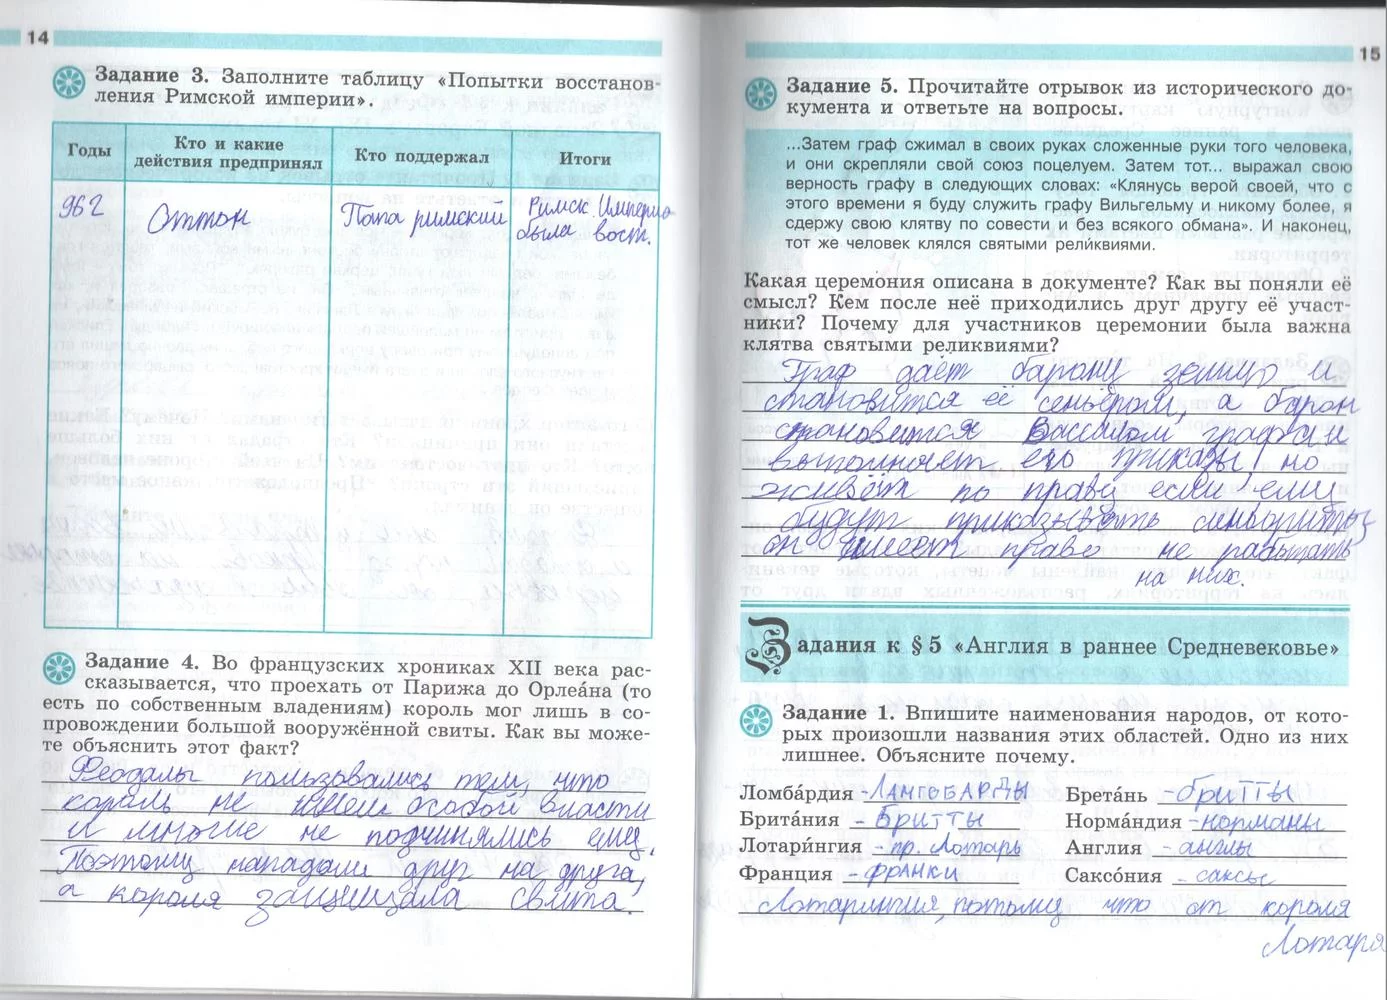 14
Задание 3. Заполните таблицу «Попытки восстанов-
ления Римской империи».
Годы
Кто и какие
действия предпринял
Кто поддержал
Итоги
962
Оттон
Папа римский
Римск. Империя
была вост.
Задание 4. Во французских хрониках XII века рас-
сказывается, что проехать от Парижа до Орлеа́на (то
есть по собственным владениям) король мог лишь в со-
провождении большой вооружённой свиты. Как вы може-
те объяснить этот факт?
Феодалы пользовались тем, что
король не имел особой власти
и многие не подчинялись ему.
Поэтому нападали друг на друга,
а короля защищала свита.
15
Задание 5. Прочитайте отрывок из исторического до-
кумента и ответьте на вопросы.
...Затем граф сжимал в своих руках сложенные руки того человека,
и они скрепляли свой союз поцелуем. Затем тот... выражал свою
верность графу в следующих словах: «Клянусь верой своей, что с
этого времени я буду служить графу Вильгельму и никому более, я
сдержу свою клятву по совести и без всякого обмана». И наконец,
тот же человек клялся святыми рели́квиями.
Какая церемония описана в документе? Как вы поняли её
смысл? Кем после неё приходились друг другу её участ-
ники? Почему для участников церемонии была важна
клятва святыми реликвиями?
Граф даёт барону землю и
становится её сеньёром, а барон
становится Вассалом графа и
выполняет его приказы, но
живёт по праву если ему
будут приказывать сеньориты
он имеет право не работать
на них.
Задания к § 5 «Англия в раннее Средневековье»
Задание 1. Впишите наименования народов, от кото-
рых произошли названия этих областей. Одно из них
лишнее. Объясните почему.
Ломба́рдия - ЛАНГОБАРДЫ
Брета́нь - бритты
Брита́ния - Бритты
Норма́ндия - норманы
Лотари́нгия - пр. Лотарь
Англия - англы
Франция - франки
Саксо́ния - саксы
Лотарингия, потому что от короля
Лотаря